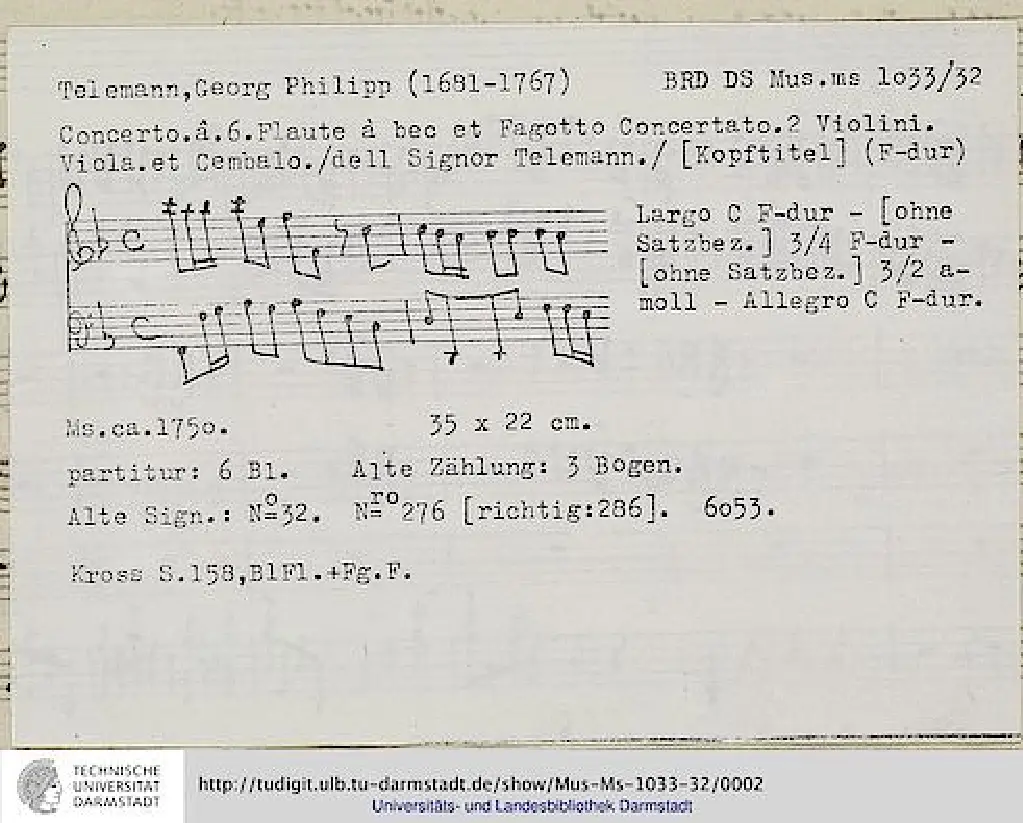 Telemann,Georg Philipp (1681-1767) BRD DS Mus.ms 1o33/32
Concerto.â.6.Flaute à bec et Fagotto Concertato.2 Violini.
Viola.et Cembalo./dell Signor Telemann./ [Kopftitel] (F-dur)
Largo C F-dur - [ohne
Satzbez.] 3/4 F-dur -
[ohne Satzbez.] 3/2 a-
moll - Allegro C F-dur.
Ms.ca.175o. 35 x 22 cm.
partitur: 6 Bl. Alte Zählung: 3 Bogen.
Alte Sign.: Nº32. Nro276 [richtig:286]. 6o53.
Kross S.158,BlFl.+Fg.F.
TECHNISCHE
UNIVERSITÄT
DARMSTADT
http://tudigit.ulb.tu-darmstadt.de/show/Mus-Ms-1033-32/0002
Universitäts- und Landesbibliothek Darmstadt